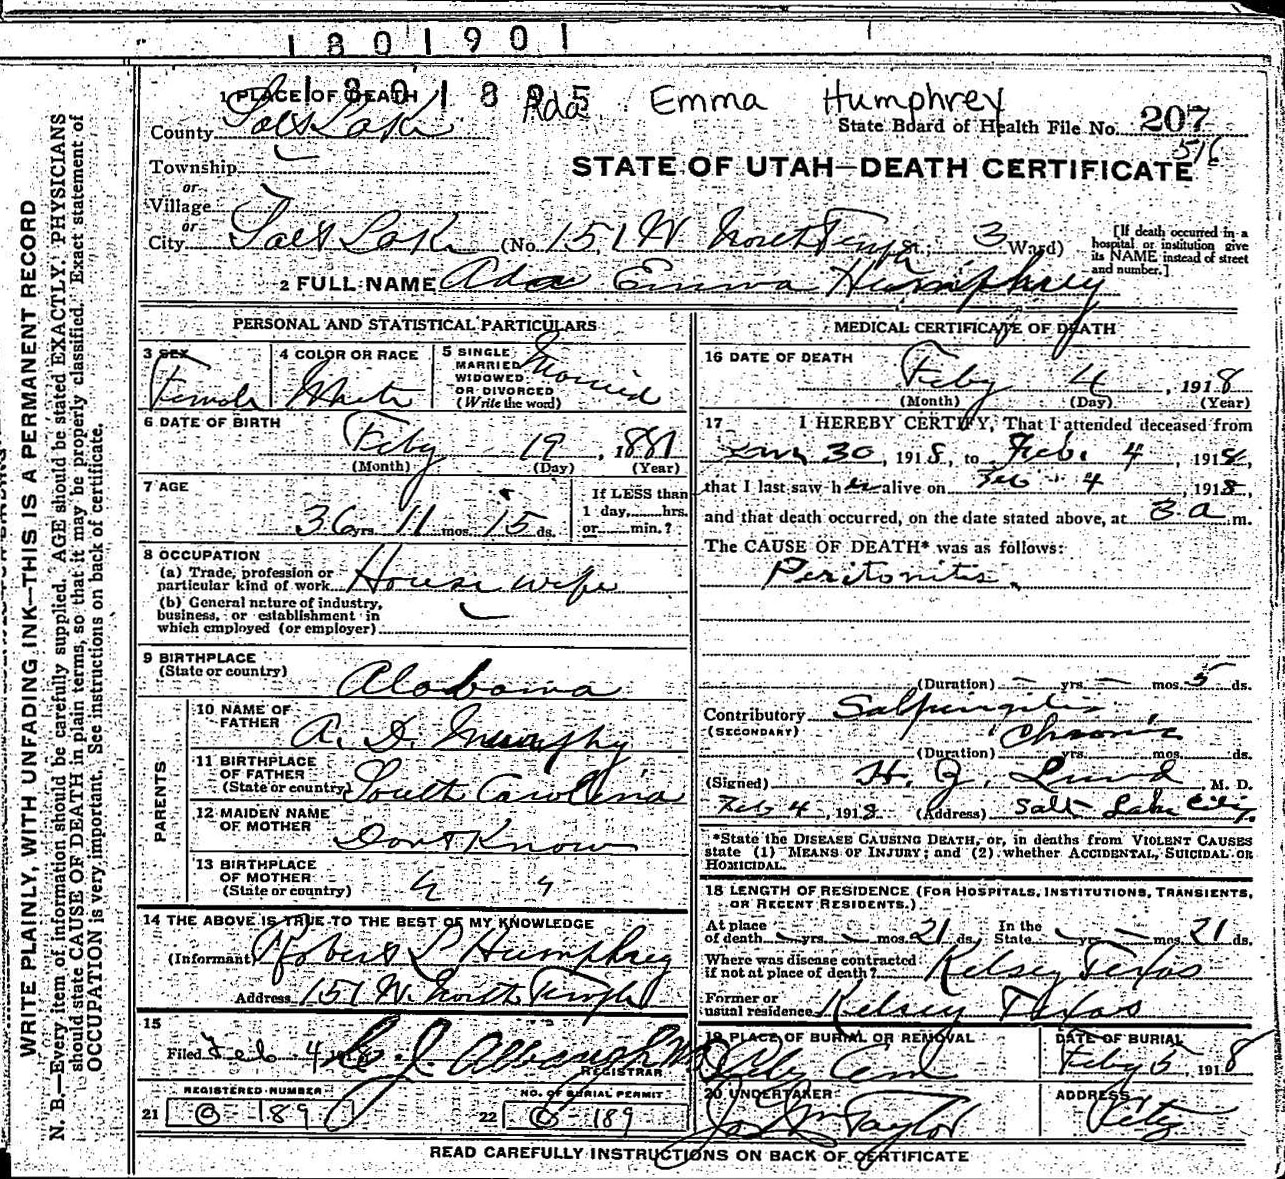 1801901
1801895
Ada Emma Humphrey
1 PLACE OF DEATH
County Salt Lake
State Board of Health File No. 207
516
Township
or
STATE OF UTAH—DEATH CERTIFICATE
Village
or
City Salt Lake (No. 151 W North Temple St.; 3 Ward)
[If death occurred in a hospital or institution give its NAME instead of street and number.]
2 FULL NAME Ada Emma Humphrey
PERSONAL AND STATISTICAL PARTICULARS
3 SEX
Female
4 COLOR OR RACE
White
5 SINGLE
MARRIED
WIDOWED
OR DIVORCED
(Write the word)
Married
6 DATE OF BIRTH
Feby 19, 1881
(Month) (Day) (Year)
7 AGE
36 yrs. 11 mos. 15 ds.
If LESS than
1 day,......hrs.
or......min.?
8 OCCUPATION
(a) Trade, profession or
particular kind of work House wife
(b) General neture of industry,
business, or establishment in
which employed (or employer)
9 BIRTHPLACE
(State or country)
Alabama
PARENTS
10 NAME OF
FATHER
A. D. Murphy
11 BIRTHPLACE
OF FATHER
(State or country) South Carolina
12 MAIDEN NAME
OF MOTHER
Dont Know
13 BIRTHPLACE
OF MOTHER
(State or country) " "
14 THE ABOVE IS TRUE TO THE BEST OF MY KNOWLEDGE
(Informant Robert L Humphrey
Address 151 W. North Temple
15
Filed Feb. 4
REGISTRAR
REGISTERED NUMBER
21 189
NO. OF BURIAL PERMIT
22 189
MEDICAL CERTIFICATE OF DEATH
16 DATE OF DEATH
Feby 4, 1918
(Month) (Day) (Year)
17 I HEREBY CERTIFY, That I attended deceased from
Jan 30, 1918, to Feb. 4, 1918,
that I last saw her alive on Feb 4, 1918,
and that death occurred, on the date stated above, at 3 a m.
The CAUSE OF DEATH* was as follows:
Peritonitis
(Duration) — yrs. — mos. 5 ds.
Contributory Salpingitis
(SECONDARY)
Chronic
(Duration) yrs. mos. ds.
(Signed) H. J. Lund M. D.
Feb 4, 1918 (Address) Salt Lake City.
*State the DISEASE CAUSING DEATH, or, in deaths from VIOLENT CAUSES
state (1) MEANS OF INJURY; and (2) whether ACCIDENTAL, SUICIDAL OR
HOMICIDAL.
18 LENGTH OF RESIDENCE (FOR HOSPITALS, INSTITUTIONS, TRANSIENTS,
OR RECENT RESIDENTS.)
At place
of death — yrs. — mos. 21 ds.
In the
State — yrs. — mos. 21 ds.
Where was disease contracted
if not at place of death? Kelsey Texas
Former or
usual residence Kelsey Texas
19 PLACE OF BURIAL OR REMOVAL
City Cem
DATE OF BURIAL
Feby 5, 1918
20 UNDERTAKER
Taylor
ADDRESS
City
READ CAREFULLY INSTRUCTIONS ON BACK OF CERTIFICATE
WRITE PLAINLY, WITH UNFADING INK—THIS IS A PERMANENT RECORD
N. B.—Every item of information should be carefully supplied. AGE should be stated EXACTLY. PHYSICIANS
should state CAUSE OF DEATH in plain terms, so that it may be properly classified. Exact statement of
OCCUPATION is very important. See instructions on back of certificate.